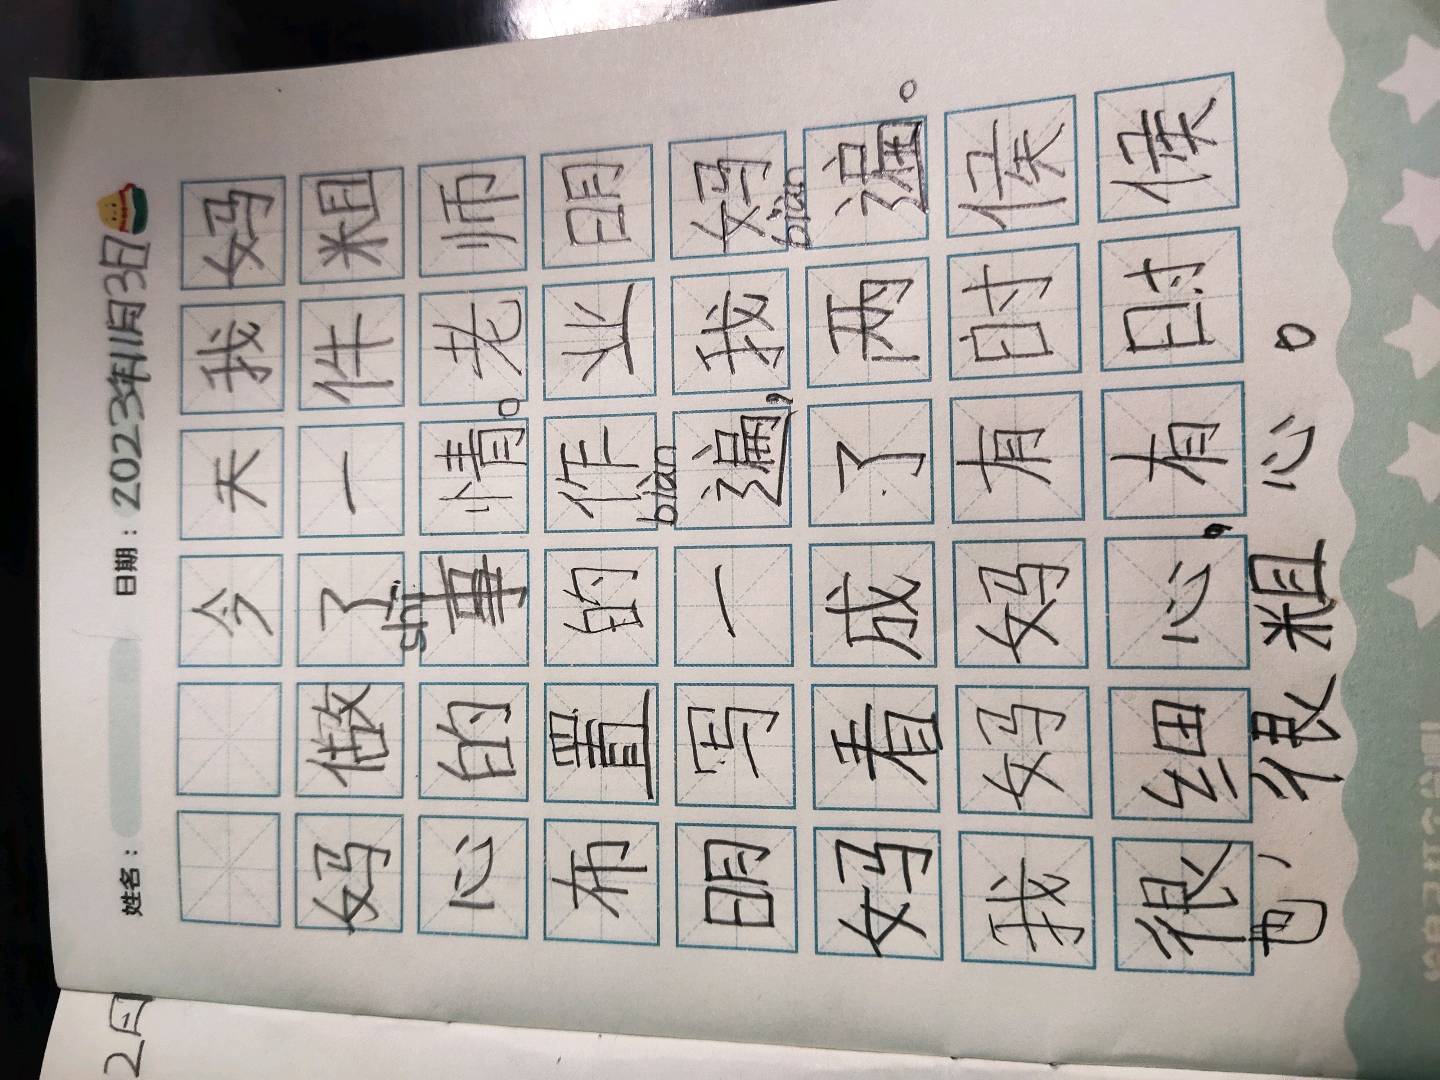 姓名： 日期：2023年11月3日
今天我妈
妈做了一件粗
shì
心的事情。老师
布置的作业明
biàn
明写一遍，我妈
biàn
妈看成了两遍。
我妈妈有时候
很细心，有时候
也很粗心。